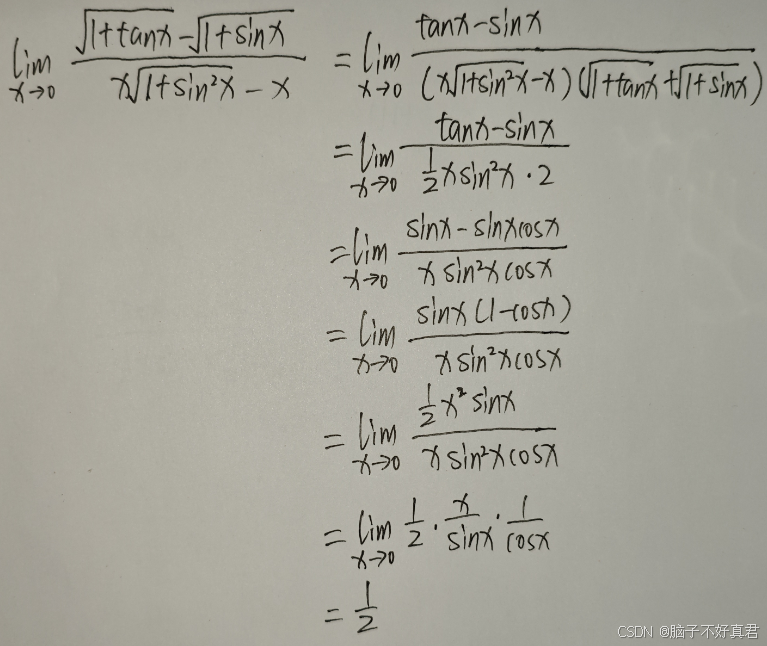 lim x→0 (√(1+tanx) - √(1+sinx)) / (x√(1+sin²x) - x) = lim x→0 (tanx - sinx) / ((x√(1+sin²x) - x)(√(1+tanx) + √(1+sinx)))
= lim x→0 (tanx - sinx) / (1/2 x sin²x · 2)
= lim x→0 (sinx - sinxcosx) / (x sin²x cosx)
= lim x→0 (sinx(1-cosx)) / (x sin²x cosx)
= lim x→0 (1/2 x² sinx) / (x sin²x cosx)
= lim x→0 1/2 · x/sinx · 1/cosx
= 1/2
CSDN @脑子不好真君